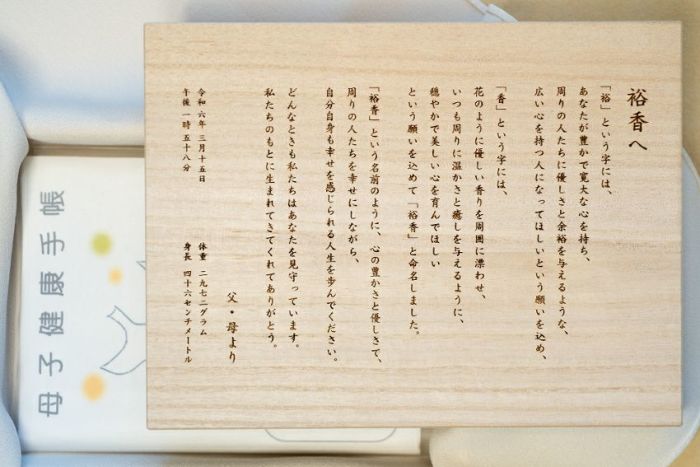 裕香へ
「裕」という字には、
あなたが豊かで寛大な心を持ち、
周りの人たちに優しさと余裕を与えるような、
広い心を持つ人になってほしいという願いを込め、
「香」という字には、
花のように優しい香りを周囲に漂わせ、
いつも周りに温かさと癒しを与えるように、
穏やかで美しい心を育んでほしい
という願いを込めて「裕香」と命名しました。
「裕香」という名前のように、心の豊かさと優しさで、
周りの人たちを幸せにしながら、
自分自身も幸せを感じられる人生を歩んでください。
どんなときも私たちはあなたを見守っています。
私たちのもとに生まれてきてくれてありがとう。
父・母より
令和六年三月十五日
午後一時五十八分
体重 二九七二グラム
身長 四十六センチメートル
母子健康手帳